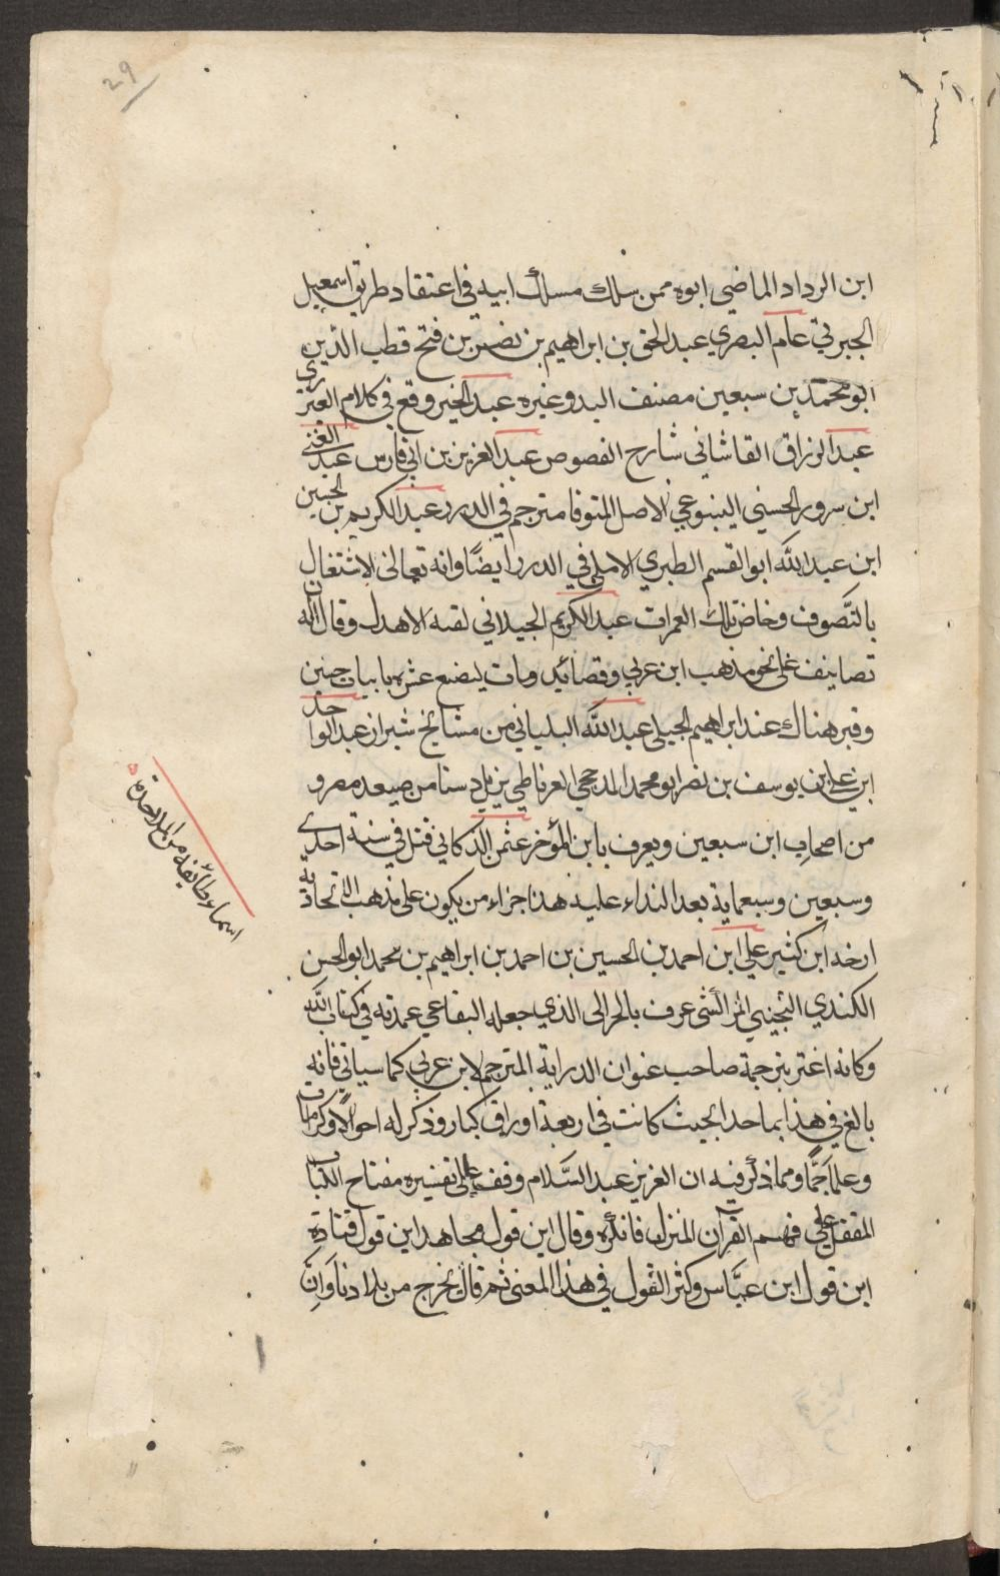 29
ابن الرداد الماضي ابوه ممن سلك مسلك ابيه في اعتقاد طريق اسمعيل
الجبرتي عام البصري عبد الحق بن ابراهيم بن نصر بن فتح قطب الدين
ابو محمد بن سبعين مصنف البد وغيره عبد الخير وقع في كلام العيزري
عبد الرزاق القاشاني شارح الفصوص عبد العزيز بن ابي فارس عبد الغني
ابن سرور الحسني الينبوعي الاصل المتوفا مترجم في الدرر عبد الكريم بن الحسين
ابن عبد الله ابو القسم الطبري الاملي في الدرر ايضًا وانه تعانى الاشتغال
بالتَّصوف وخاض تلك الغمرات عبد الكريم الجيلاني لقبه الاهدل وقال ان له
تصانيف على نحو مذهب ابن عربي وقصائد ومات لبضع عشره بابيات حسين
وقبر هناك عند ابراهيم الجبلي عبد الله البلياني من مشايخ شيراز عبد الواحد
ابن علي بن يوسف بن نصر ابو محمد المدحجي الغرناطي نزيل دسنا من صعيد مصر و
من اصحاب ابن سبعين ويعرف بابن المؤخر عثمن الدكاني قتل في سنة احدى
وسبعين وسبعماية بعد النداء عليه هذا جزاء من يكون على مذهب الاتحادية
ارخه ابن كثير علي ابن احمد بن الحسين بن احمد بن ابراهيم بن محمد ابو الحسن
الكندي التجيبي المراكشي عرف بالحرالي الذي جعله البقاعي عمدته في كتاب الله
وكانه اغتر بترجمة صاحب عنوان الدراية المترجم لابن عربي كما سياتي فانه
بالغ في هذا بما حد بحيث كانت في اربعة اوراق كبار وذكر له احوالًا وكرامات
وعلما جَمًّا ومما ذكر فيه ان العزيز عبد السَّلام وقف على تفسيره مفتاح الباب
المقفل على فهم القرآن المنزل فانكره وقال اين قول مجاهد اين قول قتادة
اين قول ابن عبَّاس وكثر القول في هذا المعنى ثم قال يخرج من بلادنا وَانَّ
اسماء طائفه من الملاحدة